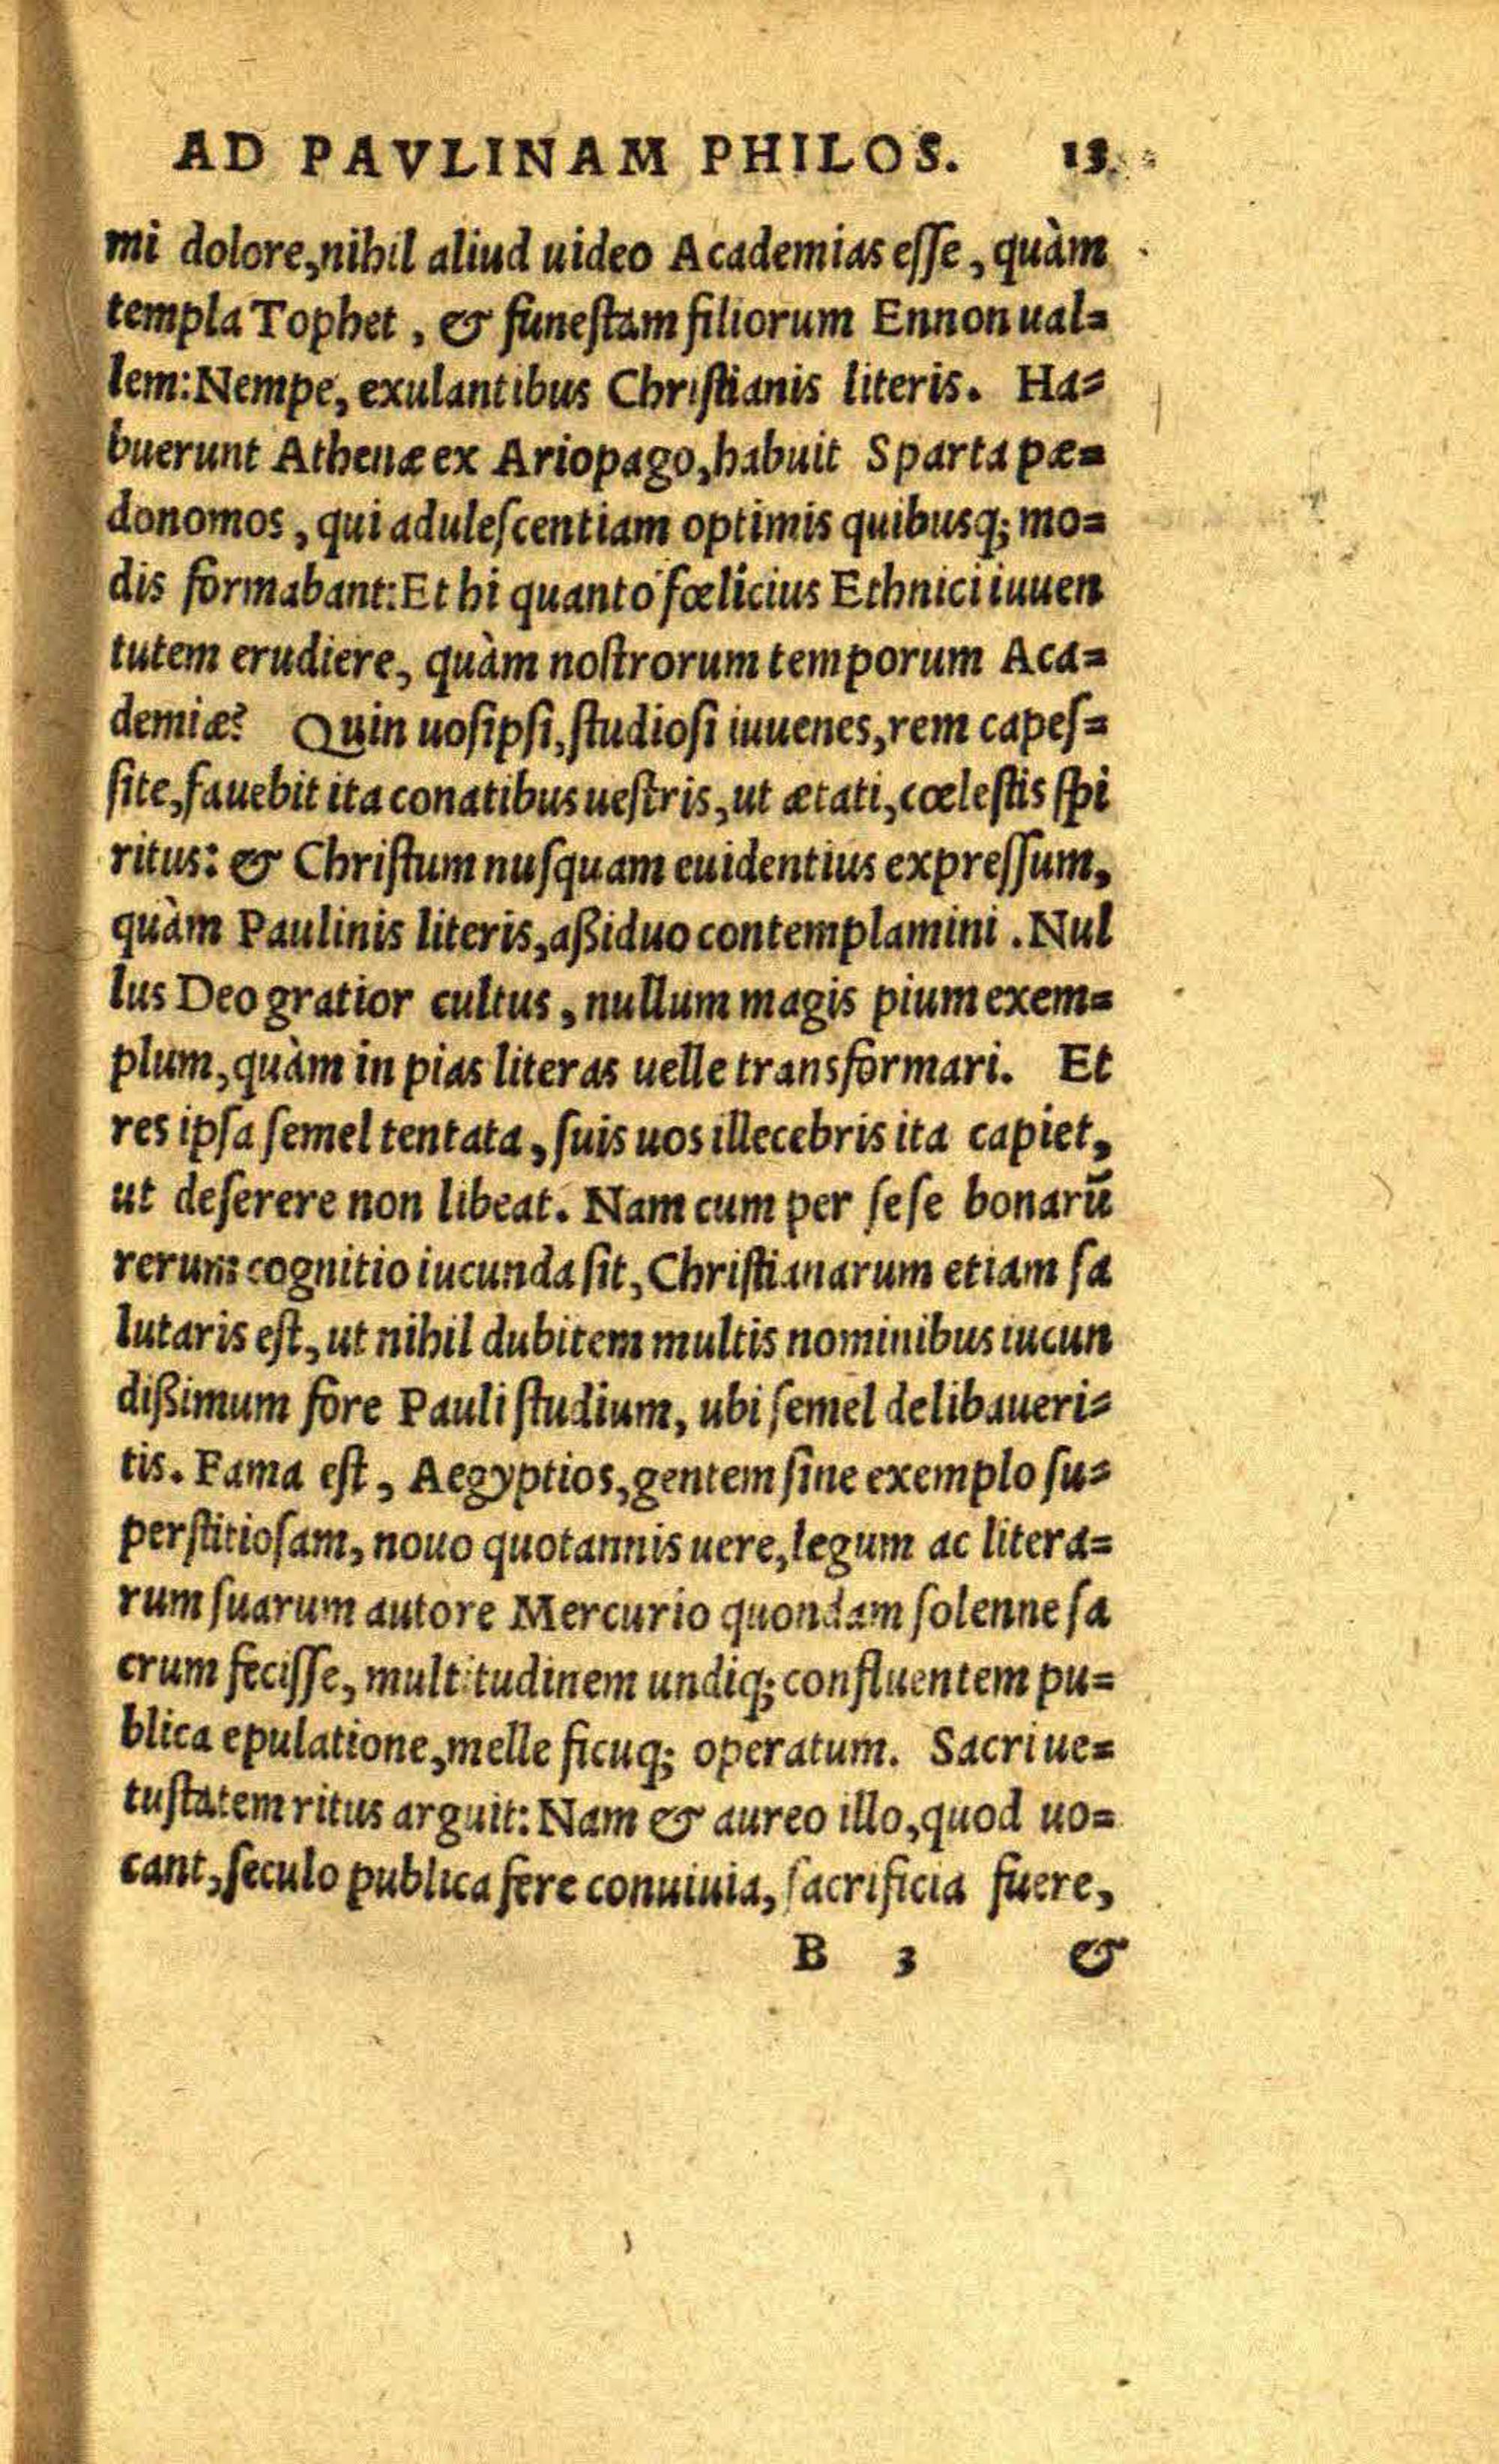 AD PAVLINAM PHILOS. 13.
mi dolore, nihil aliud uideo Academias eſſe, quàm
templa Tophet, & funeſtam filiorum Ennon ual=
lem: Nempe, exulantibus Chriſtianis literis. Ha=
buerunt Athenæ ex Ariopago, habuit Sparta pæ=
donomos, qui aduleſcentiam optimis quibusq; mo=
dis formabant: Et hi quanto fœlicius Ethnici iuuen
tutem erudiere, quàm noſtrorum temporum Aca=
demiæ? Quin uosipſi, ſtudioſi iuuenes, rem capeſ=
ſite, fauebit ita conatibus ueſtris, ut ætati, cœleſtis ſpi
ritus: & Chriſtum nuſquam euidentius expreſſum,
quàm Paulinis literis, aßiduo contemplamini. Nul
lus Deo gratior cultus, nullum magis pium exem=
plum, quàm in pias literas uelle transformari. Et
res ipſa ſemel tentata, ſuis uos illecebris ita capiet,
ut deſerere non libeat. Nam cum per ſeſe bonarū
rerum cognitio iucunda ſit, Chriſtianarum etiam ſa
lutaris eſt, ut nihil dubitem multis nominibus iucun
dißimum fore Pauli ſtudium, ubi ſemel delibaueri=
tis. Fama eſt, Aegyptios, gentem ſine exemplo ſu=
perſtitioſam, nouo quotannis uere, legum ac litera=
rum ſuarum autore Mercurio quondam ſolenne ſa
crum feciſſe, multitudinem undiq; confluentem pu=
blica epulatione, melle ficuq; operatum. Sacri ue=
tuſtatem ritus arguit: Nam & aureo illo, quod uo=
cant, ſeculo publica fere conuiuia, ſacrificia fuere,
B 3 &